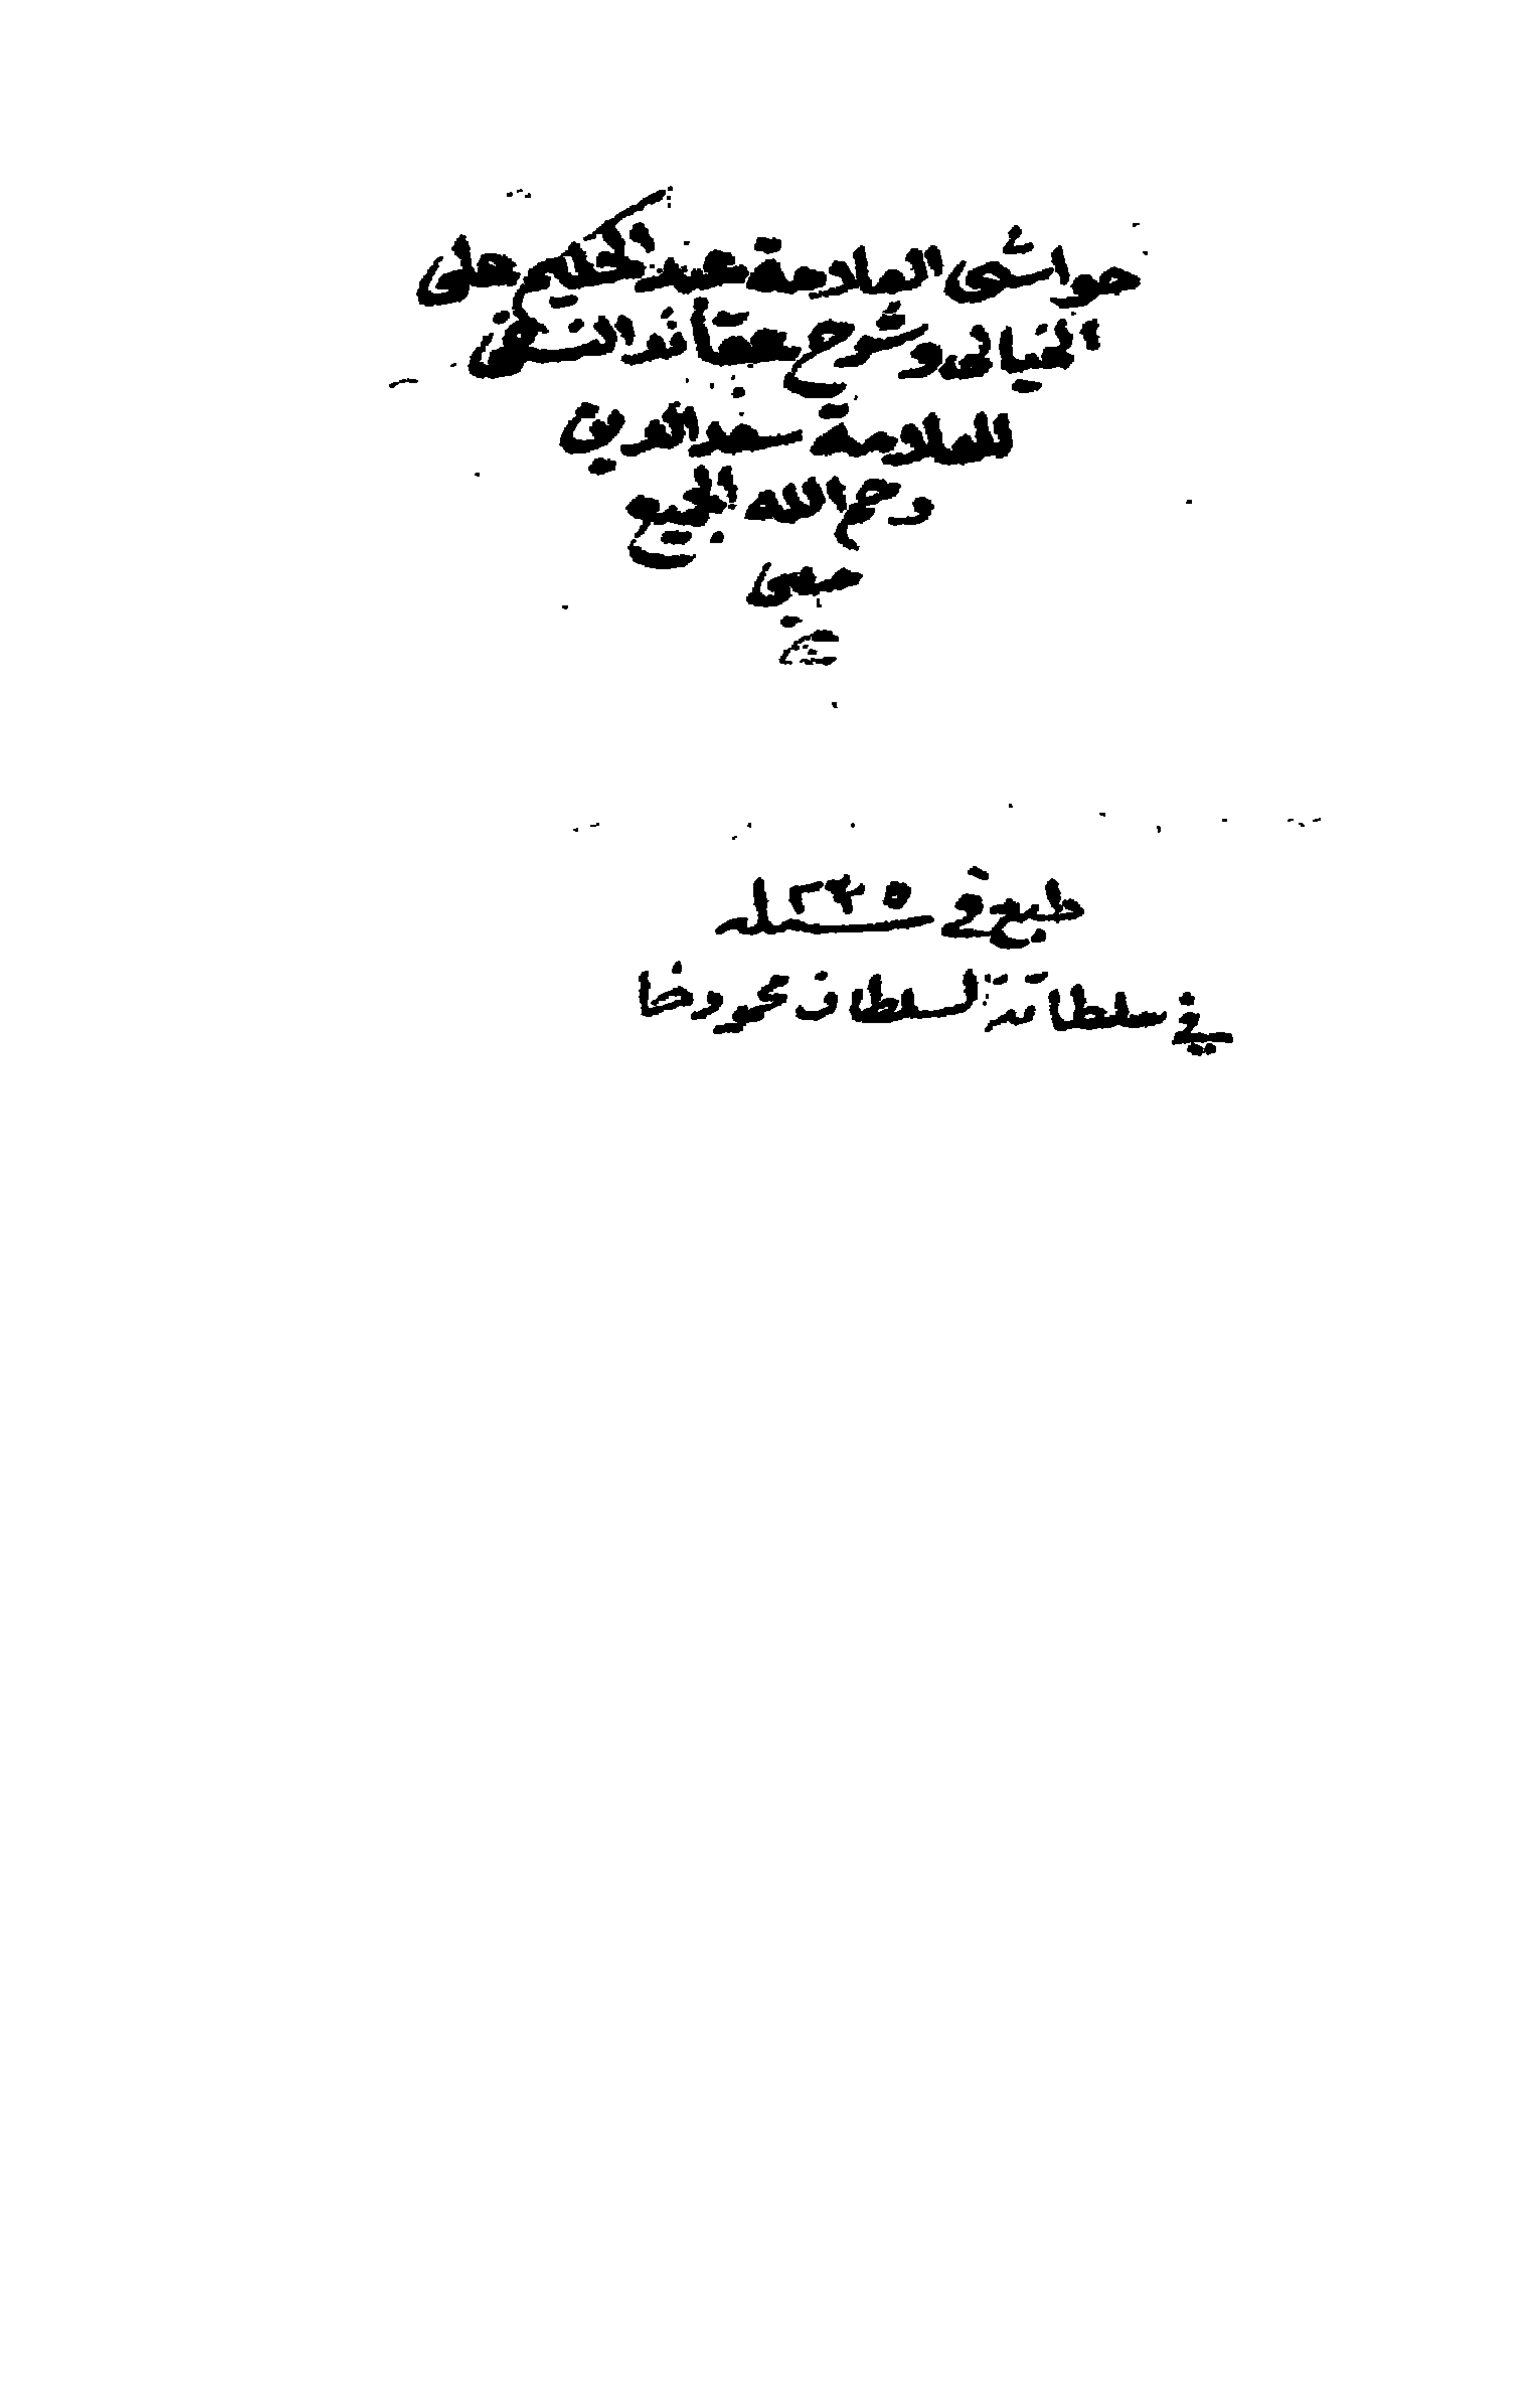 حواشى العلامة عبد الحكيم على
الخيالى وشرح عقائد النسفى
للعلامة سعد الدين
رحم الله الجميع
طبع فى ١٣٤٥
فى سلطنة السلطان محمد رضا